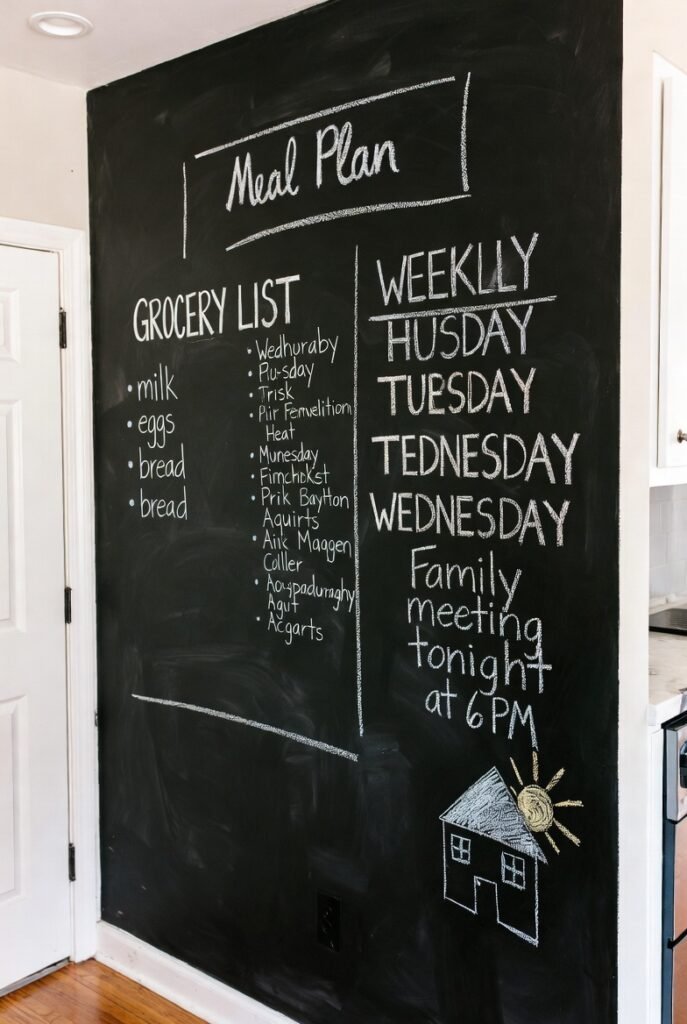 Meal Plan
GROCERY LIST
• milk
• eggs
• bread
• bread
• Wedhuraby
• Piu-sday
• Trisk
• Pir Femvelition
Heat
• Munesday
• Fimchckst
• Prik BayHon
Aquirts
• Aiik Maggen
Colller
Agut
• Acgarts
WEEKLLY
HUSDAY
TUESDAY
TEDNESDAY
WEDNESDAY
Family
meeting
tonight
at 6PM